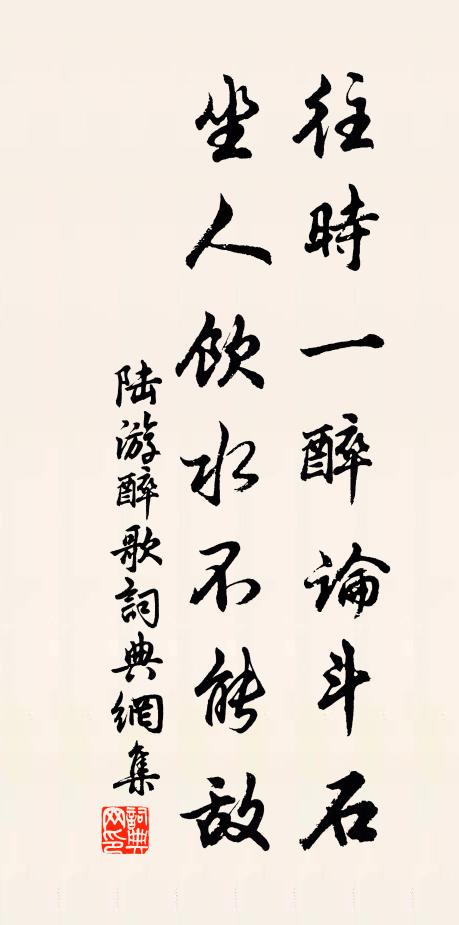 往時一醉論斗石
坐人飲水不能敵
陸游醉歌詞典網集
詞典网印